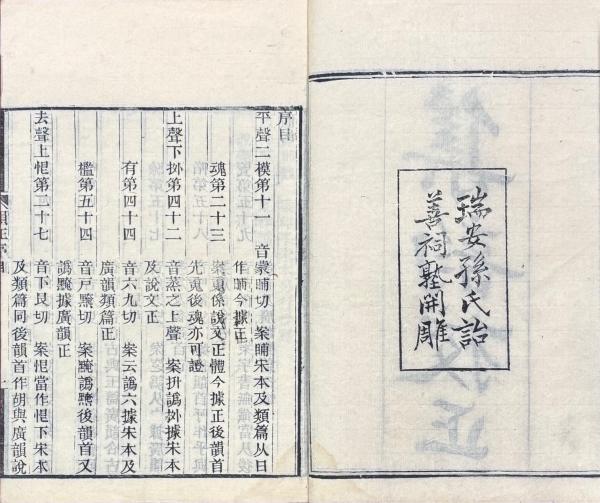 瑞安孫氏詒
善祠塾開雕
序目
平聲二模第十一 音蒙晡切 案晡宋本及類篇从日
作晡今據正
魂第二十三 案䰟係說文正體今據正後韻首
先䰟後魂亦可證
上聲下抍第四十二 音蒸之上聲 案抍譌抄據宋本
及說文正
有第四十四 音六九切 案云譌六據宋本及
廣韻類篇正
檻第五十四 音戸黶切 案黤譌黶後韻首又
譌黤據廣韻正
去聲上恨第二十七 音下艮切 案恨當作恨下宋本
及類篇同後韻首作胡與廣韻說